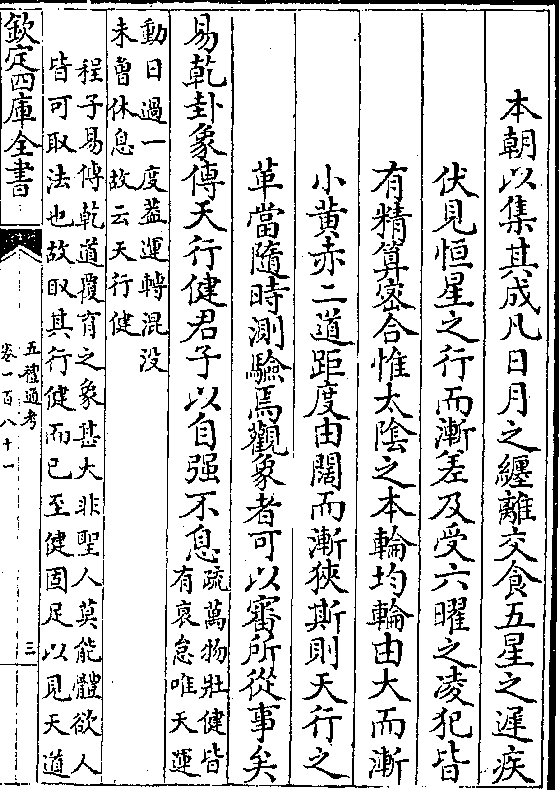 本朝以集其成凡日月之纏離交食五星之遲疾
伏見恒星之行而漸差及受六曜之凌犯皆
有精算密合惟太陰之本輪均輪由大而漸
小黄赤二道距度由闊而漸狹斯則天行之
革當隨時測驗焉觀象者可以審所從事矣
易乾卦象傳天行健君子以自强不息
疏萬物壯健皆
有衰怠唯天運
動日過一度葢運轉混没
未曾休息故云天行健
程子易傳乾道覆育之象甚大非聖人莫能體欲人
皆可取法也故取其行健而已至健固足以見天道
欽定四庫全書
五禮通考
卷一百八十一
三